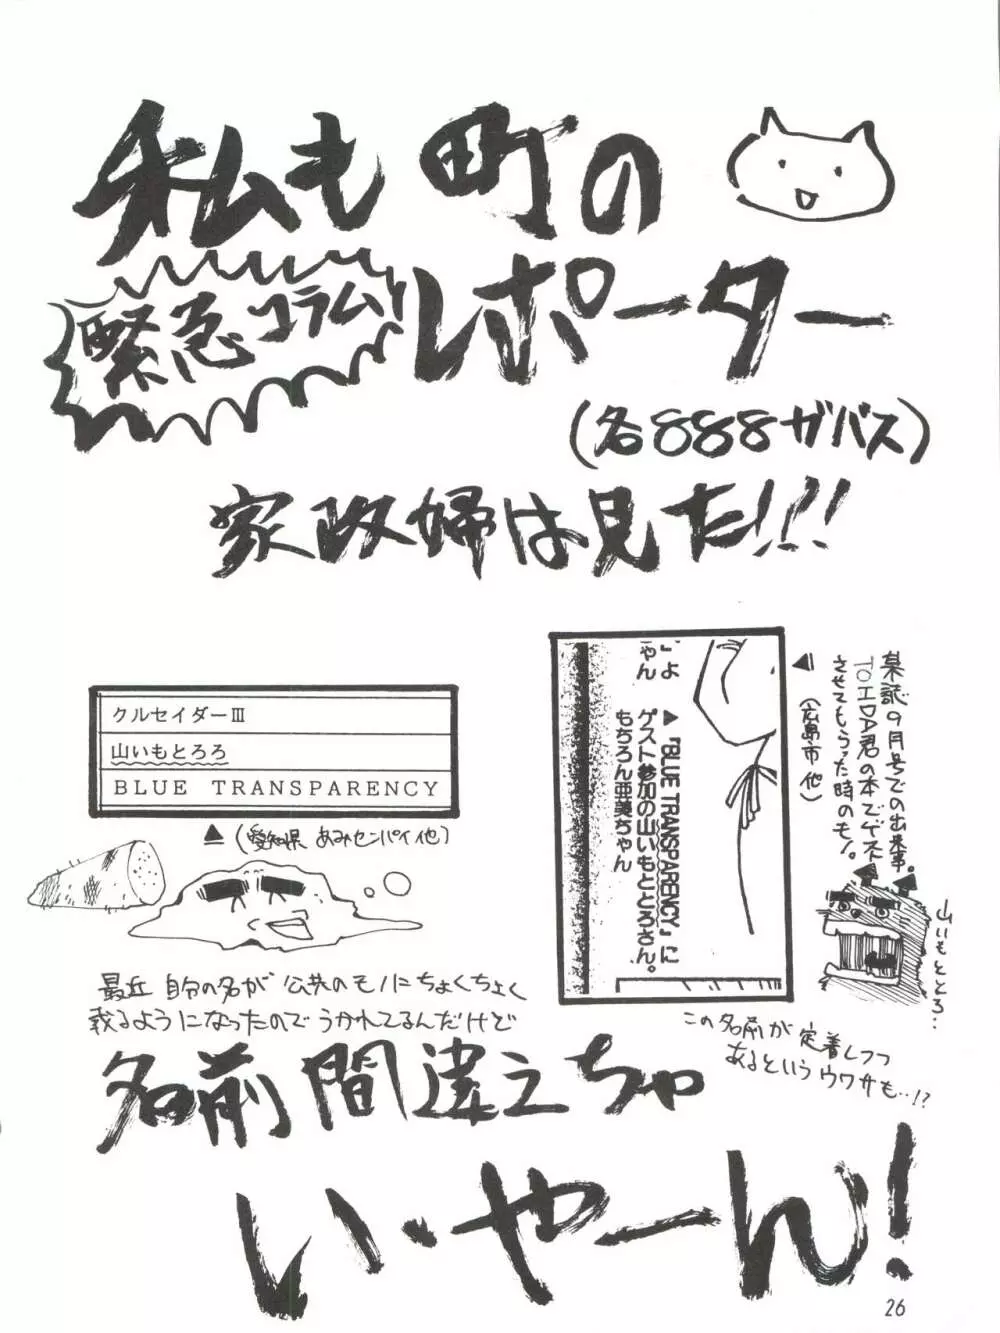 私も町の
レポーター
緊急コラム
(名888ガバス)
家政婦は見た!!!
クルセイダーⅢ
山いもとろろ
BLUE TRANSPARENCY
▲(愛知県 あみセンパイ他)
」よ
ゃん
▲『BLUE TRANSPARENCY』に
ゲスト参加の山いもととろさん。
もちろん亜美ちゃん
某誌9月号での出来事。
TOIDA君の本でゲスト
させてもらった時のモノ。
▲(広島市 他)
山いもととろ…
最近 自分の名が 公共のモノにちょくちょく
載るようになったので うかれてるんだけど
この名前が定着しつつ
あるというウワサも…!?
名前間違えちゃ
い・やーん!
26